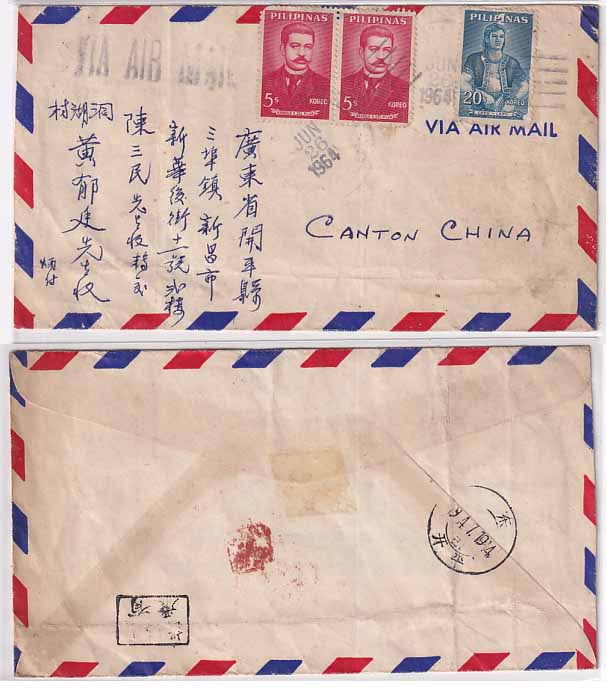 PILIPINAS
5s KOREO
PILIPINAS
5s KOREO
PILIPINAS
20s KOREO
JUN
26
1964
JUN
26
1964
VIA AIR MAIL
CANTON CHINA
廣東省開平縣
三埠鎮新昌市
新華後街十一號弍樓
陳三民先生收轉交
洞湖村
黃郁廷先生收
开平